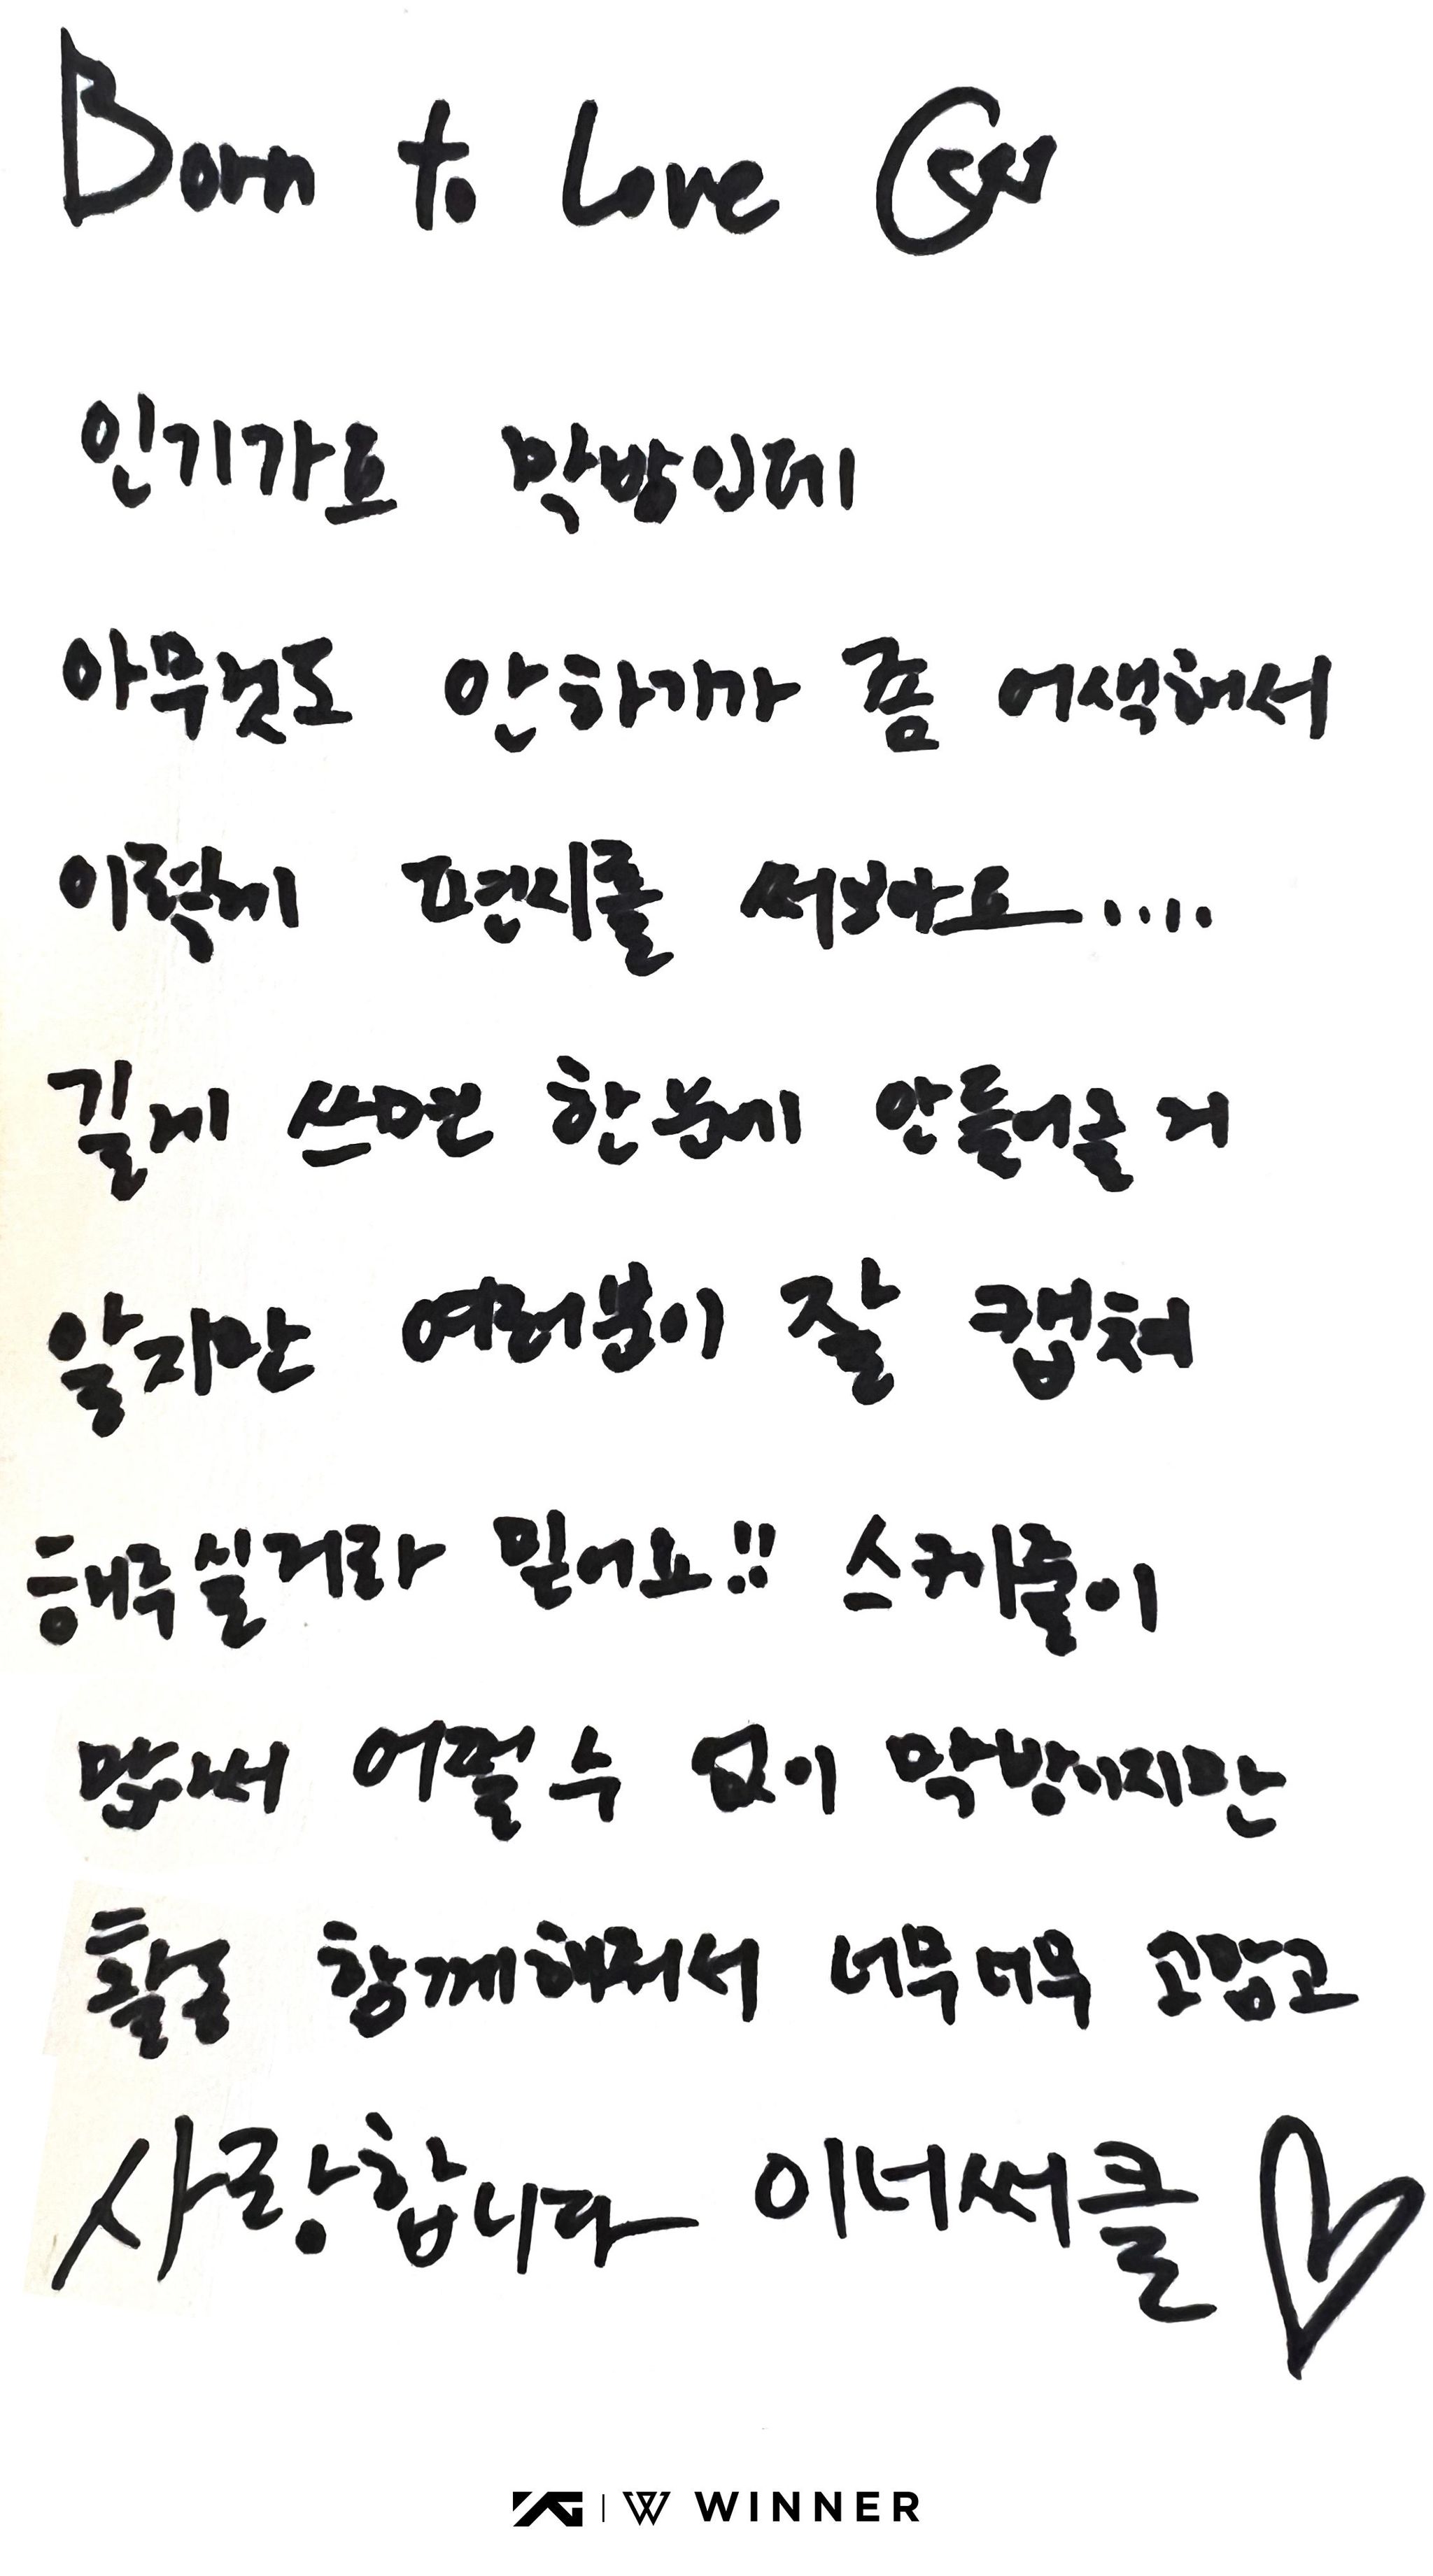 Born to Love
인기가요 막방인데
아무것도 안하기가 좀 어색해서
이렇게 편지를 써보아요....
길게 쓰면 한 눈에 안들어올 거
알지만 여러분이 잘 캡쳐
해주실거라 믿어요!! 스케줄이
많아서 어쩔 수 없이 막방이지만
활동 함께해줘서 너무너무 고맙고
사랑합니다 이너써클 ♡
YG | W WINNER